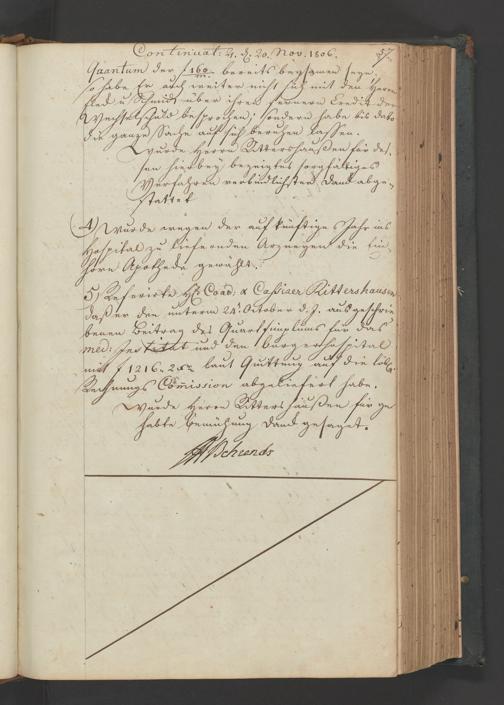 Continuat: 21. d. 20. Nov. 1806.
Quantum der f 160 bereits beysamen seye,
so habe Er auch weiter nicht sich mit den Herrn
und Schmidt über ihren fernern Credit der
Wechselschuld besprochen, sondern habe bis dato
die ganze Sache auf sich beruhen lassen.
Wurde Herrn Rittershaußen für des-
sen hierbey bezeigtes sorgfältiges
Verfahren verbindlichster Dank abge-
stattet
4) Wurde wegen der auf künftiges Jahr ins
Hospital zu liefernden Arzneyen die Ein-
horn Apotheke gewählt.
5) Referirte Hr. Coad: & Caßierer Rittershausen
daß er den unterm 24. October d. J. ausgeschrie-
benen Beitrag des Quartsimplums für das
med: Institut und den Burgerhospital
mit f 1216. laut Quittung auf die löbl.
Rechnungs Comission abgeliefert habe.
Wurde Herrn Rittershaußen für ge-
habte Bemühung Dank gesaget.
Behrends